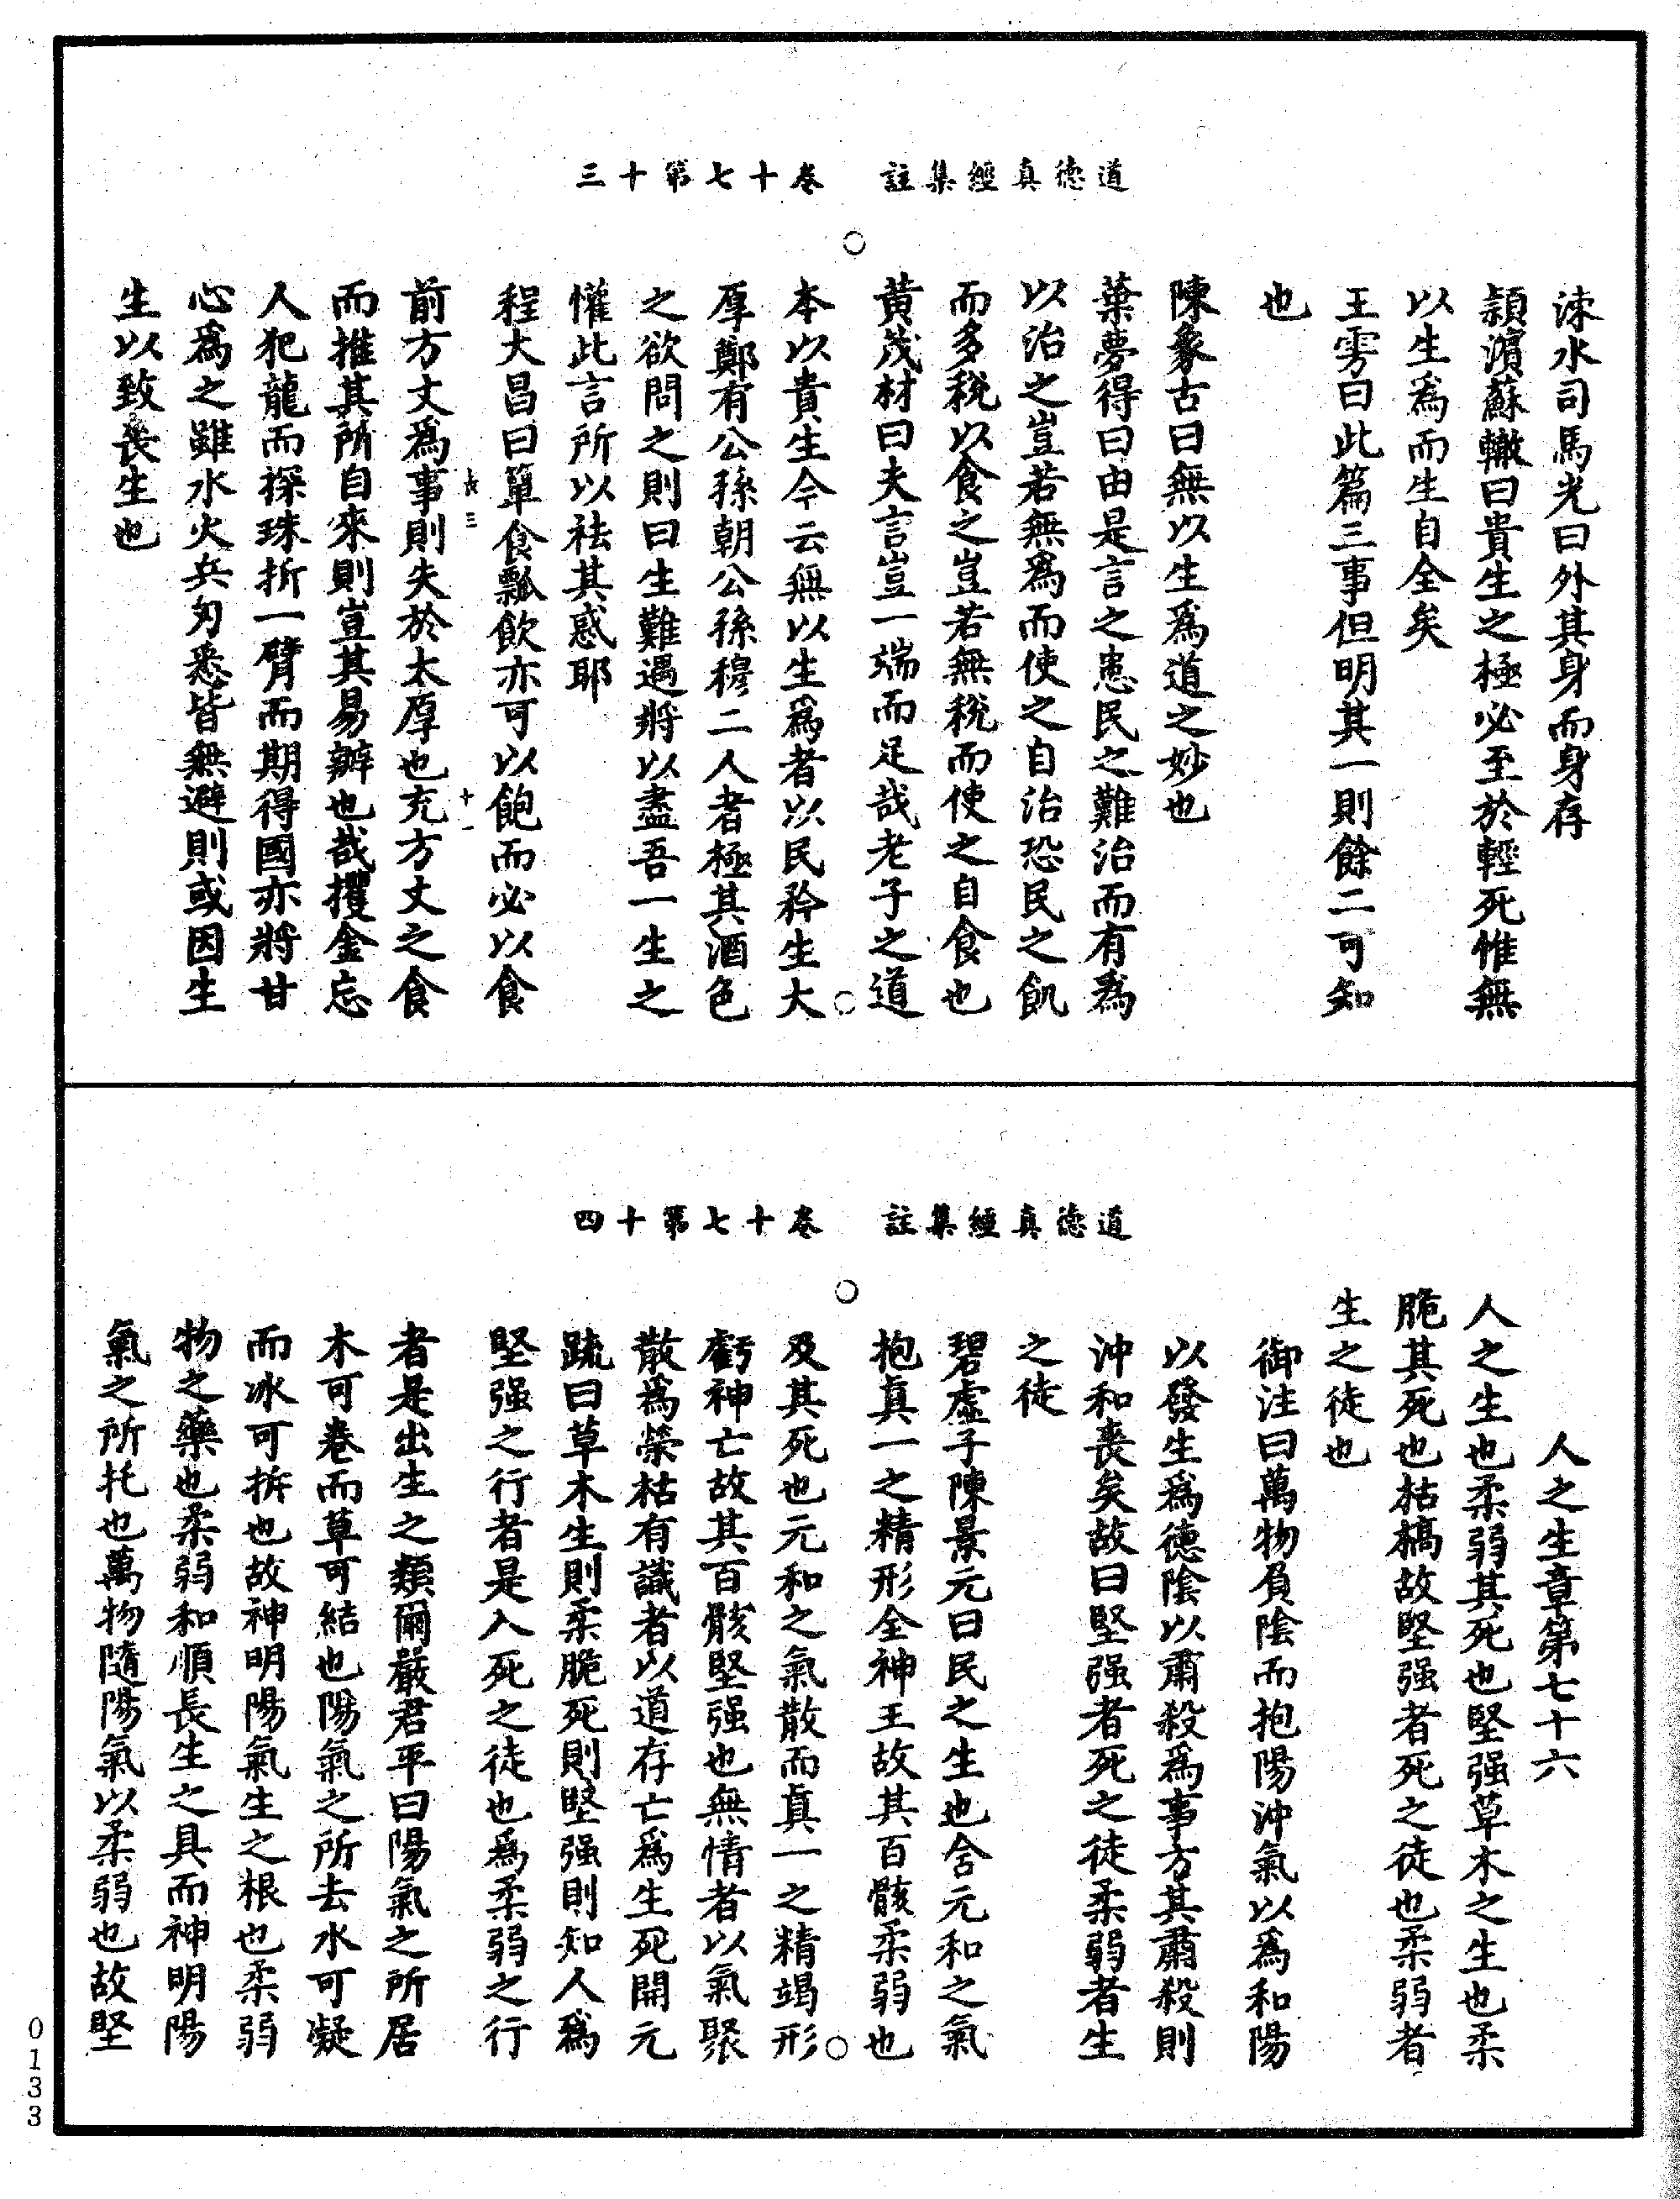 道德真經集註 卷十七第十三
涑水司馬光曰外其身而身存
潁濵蘇轍曰貴生之極必至於輕死惟無
以生爲而生自全矣
王雱曰此篇三事但明其一則餘二可知
也
陳象古曰無以生爲道之妙也
葉夢得曰由是言之患民之難治而有爲
以治之豈若無爲而使之自治恐民之飢
而多稅以食之豈若無稅而使之自食也
黃茂材曰夫言豈一端而足哉老子之道
本以貴生今云無以生爲者以民矜生大
厚鄭有公孫朝公孫穆二人者極其酒色
之欲問之則曰生難遇將以盡吾一生之
懽此言所以祛其惑耶
程大昌曰簞食瓢飲亦可以飽而必以食
前方丈爲事則失於太厚也充方丈之食
而推其所自來則豈其易辦也哉攫金忘
人犯龍而探珠折一臂而期得國亦將甘
心爲之雖水火兵刃悉皆無避則或因生
生以致喪生也
道德真經集註 卷十七第十四
人之生章第七十六
人之生也柔弱其死也堅强草木之生也柔
脆其死也枯槁故堅强者死之徒也柔弱者
生之徒也
御注曰萬物負陰而抱陽沖氣以爲和陽
以發生爲德陰以肅殺爲事方其肅殺則
沖和喪矣故曰堅强者死之徒柔弱者生
之徒
碧虛子陳景元曰民之生也含元和之氣
抱真一之精形全神王故其百骸柔弱也
及其死也元和之氣散而真一之精竭形
虧神亡故其百骸堅强也無情者以氣聚
散爲榮枯有識者以道存亡爲生死開元
疏曰草木生則柔脆死則堅强則知人爲
堅强之行者是入死之徒也爲柔弱之行
者是出生之類爾嚴君平曰陽氣之所居
木可卷而草可結也陽氣之所去水可凝
而冰可拆也故神明陽氣生之根也柔弱
物之藥也柔弱和順長生之具而神明陽
氣之所托也萬物隨陽氣以柔弱也故堅
0133